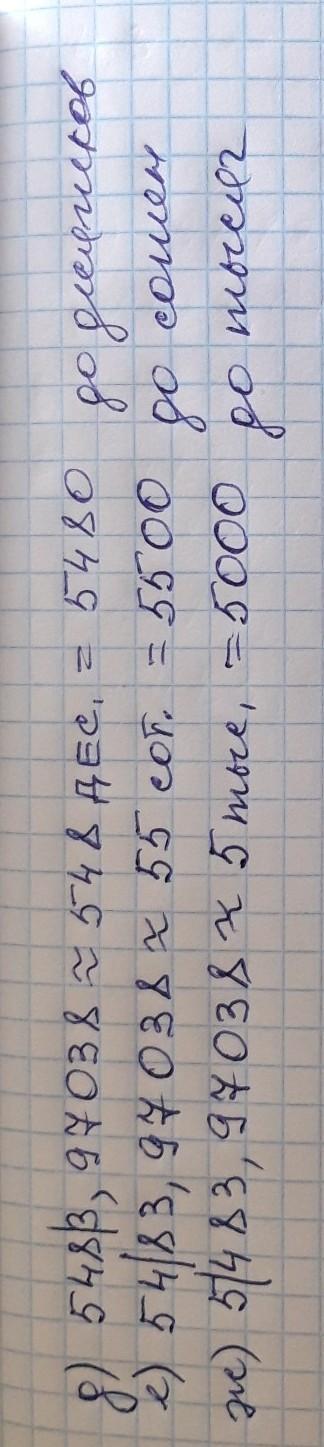 д) 548|3, 97038 ≈ 548 ДЕС. = 5480 до десятков
е) 54|83, 97038 ≈ 55 сот. = 5500 до сотен
ж) 5|483, 97038 ≈ 5 тыс. = 5000 до тысяч